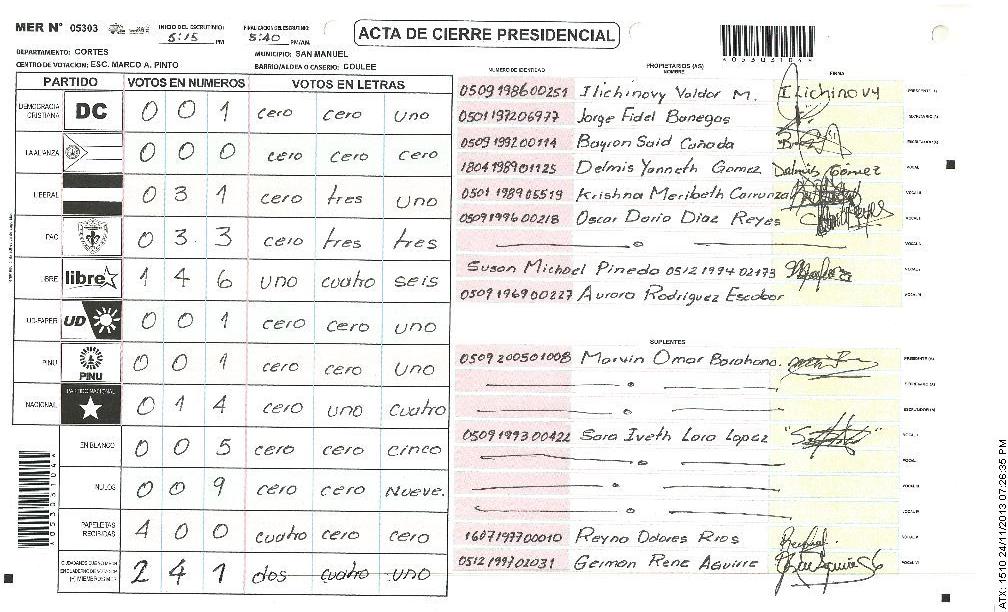 MER N° 05303
INICIO DEL ESCRUTINIO: 5:15 PM
FINALIZACION DEL ESCRUTINIO: 5:40 PM/AM.
ACTA DE CIERRE PRESIDENCIAL
*0530310*
DEPARTAMENTO: CORTES
MUNICIPIO: SAN MANUEL
CENTRO DE VOTACION: ESC. MARCO A. PINTO
BARRIO/ALDEA O CASERIO: COULEE
PARTIDO VOTOS EN NUMEROS VOTOS EN LETRAS
DEMOCRACIA CRISTIANA DC 0 0 1 cero cero uno
LA ALIANZA 0 0 0 cero cero cero
LIBERAL 0 3 1 cero tres uno
PAC 0 3 3 cero tres tres
LIBRE libre 1 4 6 uno cuatro seis
UD-FAPER UD 0 0 1 cero cero uno
PINU PINU 0 0 1 cero cero uno
NACIONAL PARTIDO NACIONAL 0 1 4 cero uno cuatro
EN BLANCO 0 0 5 cero cero cinco
NULOS 0 0 9 cero cero nueve.
PAPELETAS RECIBIDAS 4 0 0 cuatro cero cero
2 4 1 dos cuatro uno
NUMERO DE IDENTIDAD PROPIETARIOS (AS) NOMBRE FIRMA
0509198600251 Ilichinovy Valdor M. Ilichinovy PRESIDENTE (A)
0501197206977 Jorge Fidel Banegas SECRETARIO (A)
0509199200114 Bayron Said Cañada ESCRUTADOR (A)
1804198901125 Delmis Yanneth Gomez Delmis Gomez VOCAL
0501198905519 Krishna Meribeth Carranza
0509199600218 Oscar Dario Diaz Reyes
Susan Michael Pineda 0512199402173
0509196900227 Aurora Rodriguez Escobar
SUPLENTES
0509200501008 Marvin Omar Barahona. PRESIDENTE (A)
SECRETARIO (A)
ESCRUTADOR (A)
0509199300422 Sara Iveth Lara Lopez
1607197700010 Reyna Dolores Rios
0512199702031 German Rene Aguirre
ATX: 1510 24/11/2013 07:26:35 PM